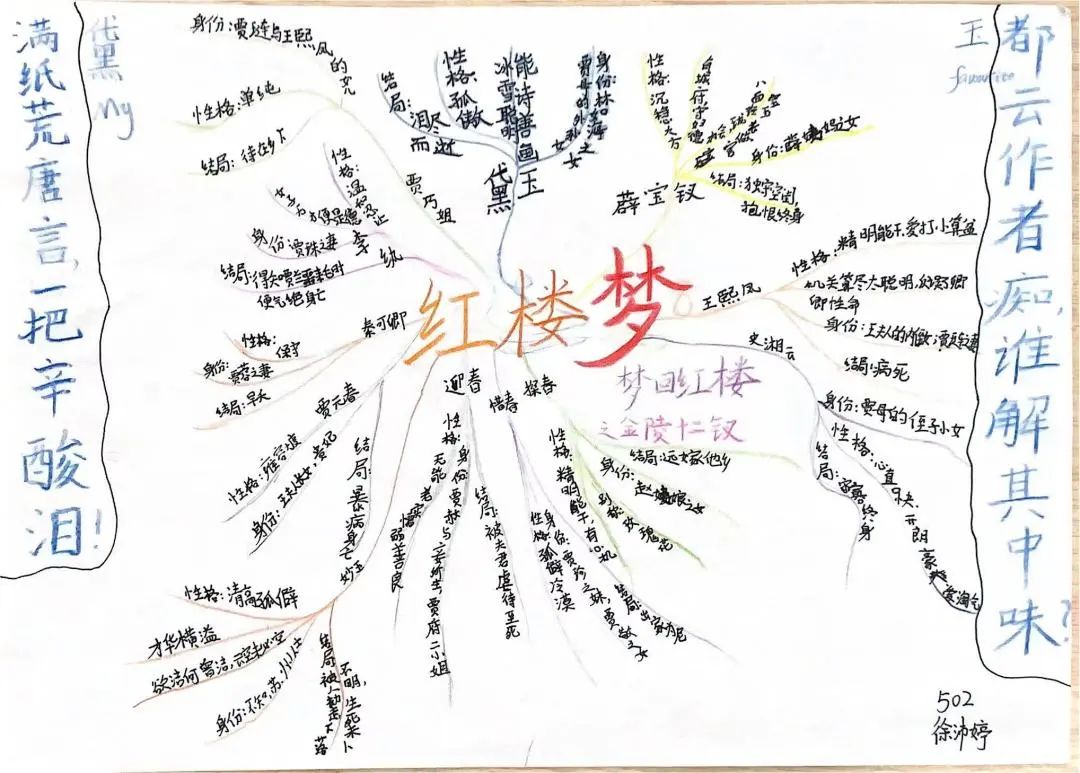 满纸荒唐言,一把辛酸泪!
黛黑
My
玉
favourite
都云作者痴,谁解其中味?
红楼梦
梦回红楼
之金陵十二钗
贾巧姐
身份:贾琏与王熙凤的女儿
性格:单纯
结局:
黛黑玉
结局:泪尽而逝
性格:孤傲
冰雪聪明
能诗善画
身份:林如海之女
贾母的外孙女
薛宝钗
性格:沉稳大方
身份:薛姨妈之女
结局:独守空闺,
抱恨终身
王熙凤
性格:精明能干,爱打小算盘
机关算尽太聪明,
卿性命
身份:王夫人的内侄女,贾琏妻
结局:病死
史湘云
身份:贾母的侄子小女
性格:心直口快 开朗豪爽 爱淘气
结局:守寡终身
李纨
性格:温和
身份:贾珠之妻
结局:
便气绝身亡
秦可卿
性格:
保守
身份:贾蓉之妻
结局:早夭
贾元春
性格:雍容
身份:王夫人女,贵妃
结局:暴病身亡
妙玉
性格:清高孤僻
才华横溢
欲洁何曾洁,云空未必空
身份:不知,苏州人士
结局:被人劫去下落
不明,生死未卜
迎春
性格:老实无能
懦弱善良
身份:贾赦与妾所生,贾府二小姐
结局:被夫君虐待至死
惜春
性格:孤僻冷漠
身份:贾珍之妹,贾敬之女
结局:出家为尼
探春
性格:精明能干,有心机
别称:玫瑰花
身份:赵姨娘之女
结局:远嫁他乡
502
徐沛婷